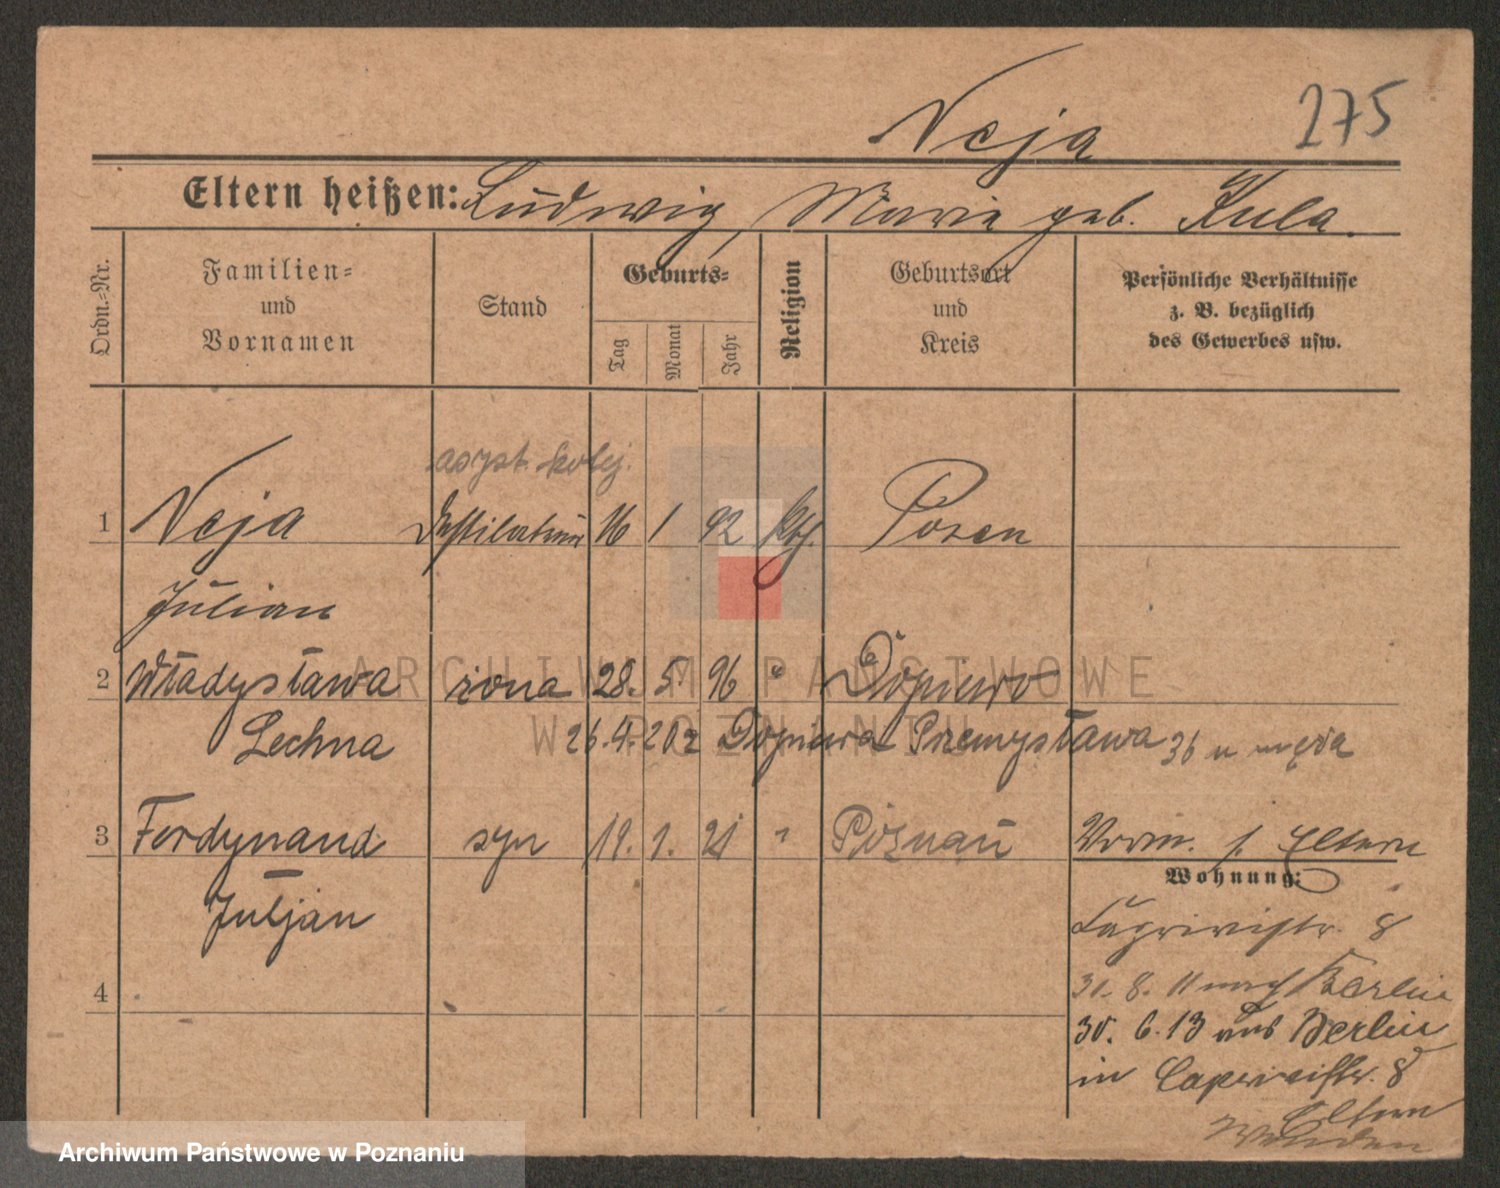 Neja 275
Eltern heißen: Ludwig, Marie geb. Kula.
Ordn.-Nr.
Familien-
und
Vornamen
Stand
Geburts-
Tag
Monat
Jahr
Religion
Geburtsort
und
Kreis
Persönliche Verhältnisse
z. B. bezüglich
des Gewerbes usw.
asyst. kolej.
1 Neja 16 1 92 kth. Posen
Julian
2 Władysława żona 28. 5. 96 " Dopiewo
Lechna 26.4.20 z Dopiewa Przemysława 36 u męża
3 Ferdynand syn 19. 1. 21 " Poznań Vorm. s. Eltern
Juljan
Wohnung:
Caprivistr. 8
4
31. 8. 11 nach Berlin
30. 6. 13 aus Berlin
in Caprivistr. 8
Eltern
ARCHIWUM PAŃSTWOWE
W POZNANIU
Archiwum Państwowe w Poznaniu